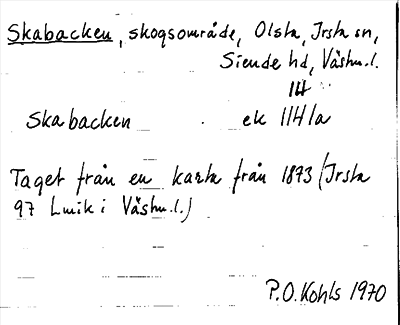 Skabacken, skogsområde, Olsta, Irsta sn,
Siende hd, Västm.l.
114
Skabacken ek 114 1a
Taget från en karta från 1873 (Irsta
97 Lmik i Västm.l.)
P.O.Kohls 1970